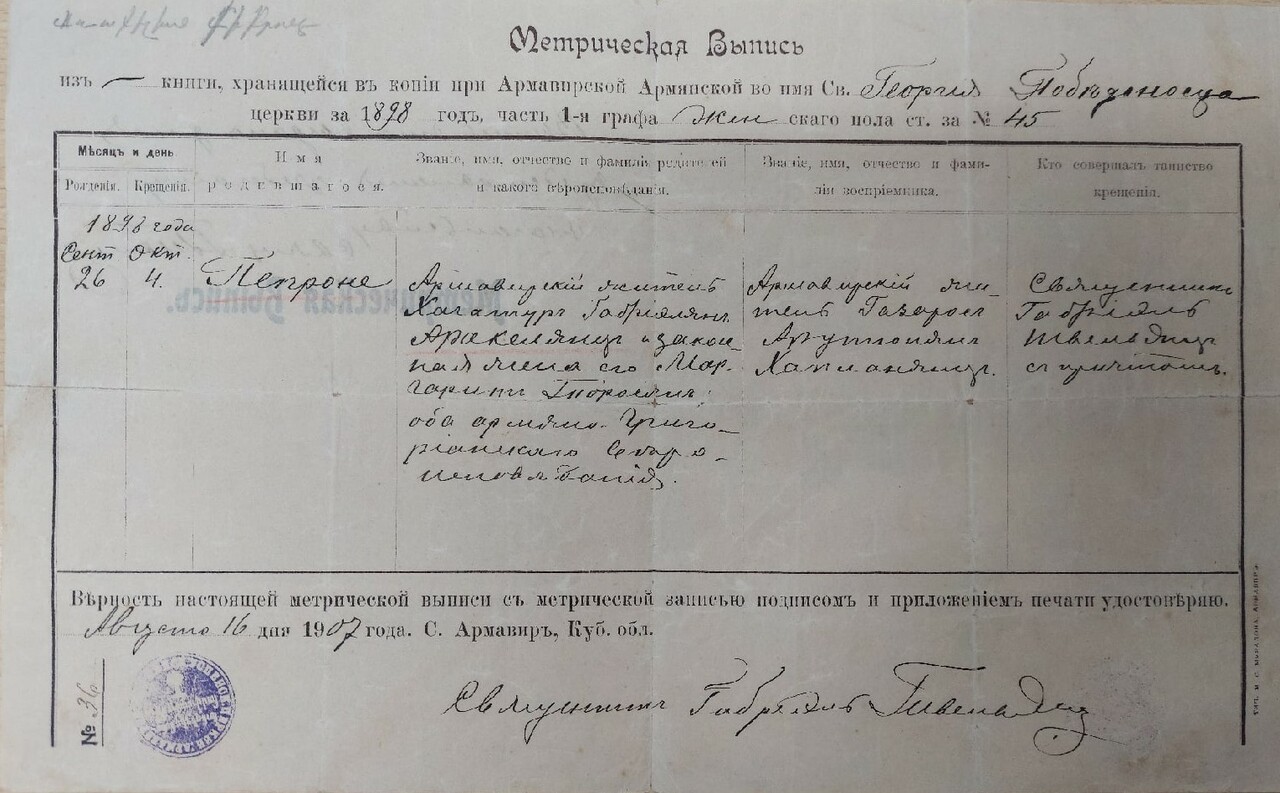 Метрическая Выпись
изъ — книги, хранящейся въ копіи при Армавирской Армянской во имя Св. Георгія Побѣдоносца
церкви за 1898 годъ, часть 1-я графа Жен скаго пола ст. за № 45
Мѣсяцъ и день
Рожденія. Крещенія.
Имя
родившагося.
Званіе, имя, отчество и фамилія родителей
и какого вѣроисповѣданія.
Званіе, имя, отчество и фами-
лія воспріемника.
Кто совершалъ таинство
крещенія.
1898 года
Сент Окт.
26 4.
Петроне
Армавирскій житель
Хачатуръ Габріелянъ
Аракелянцъ и закон
ная жена его Мар-
гарита
оба армяно-Григо-
ріанскаго
исповѣданія.
Армавирскій жи-
тель Газаросъ
Арутюнянъ
Капланянцъ.
Священникъ
Габріэлъ
съ причтомъ.
Вѣрность настоящей метрической выписи съ метрической записью подписомъ и приложеніемъ печати удостовѣряю.
Августа 16 дня 1907 года. С. Армавиръ, Куб. обл.
№ 36
Священникъ Габріэлъ